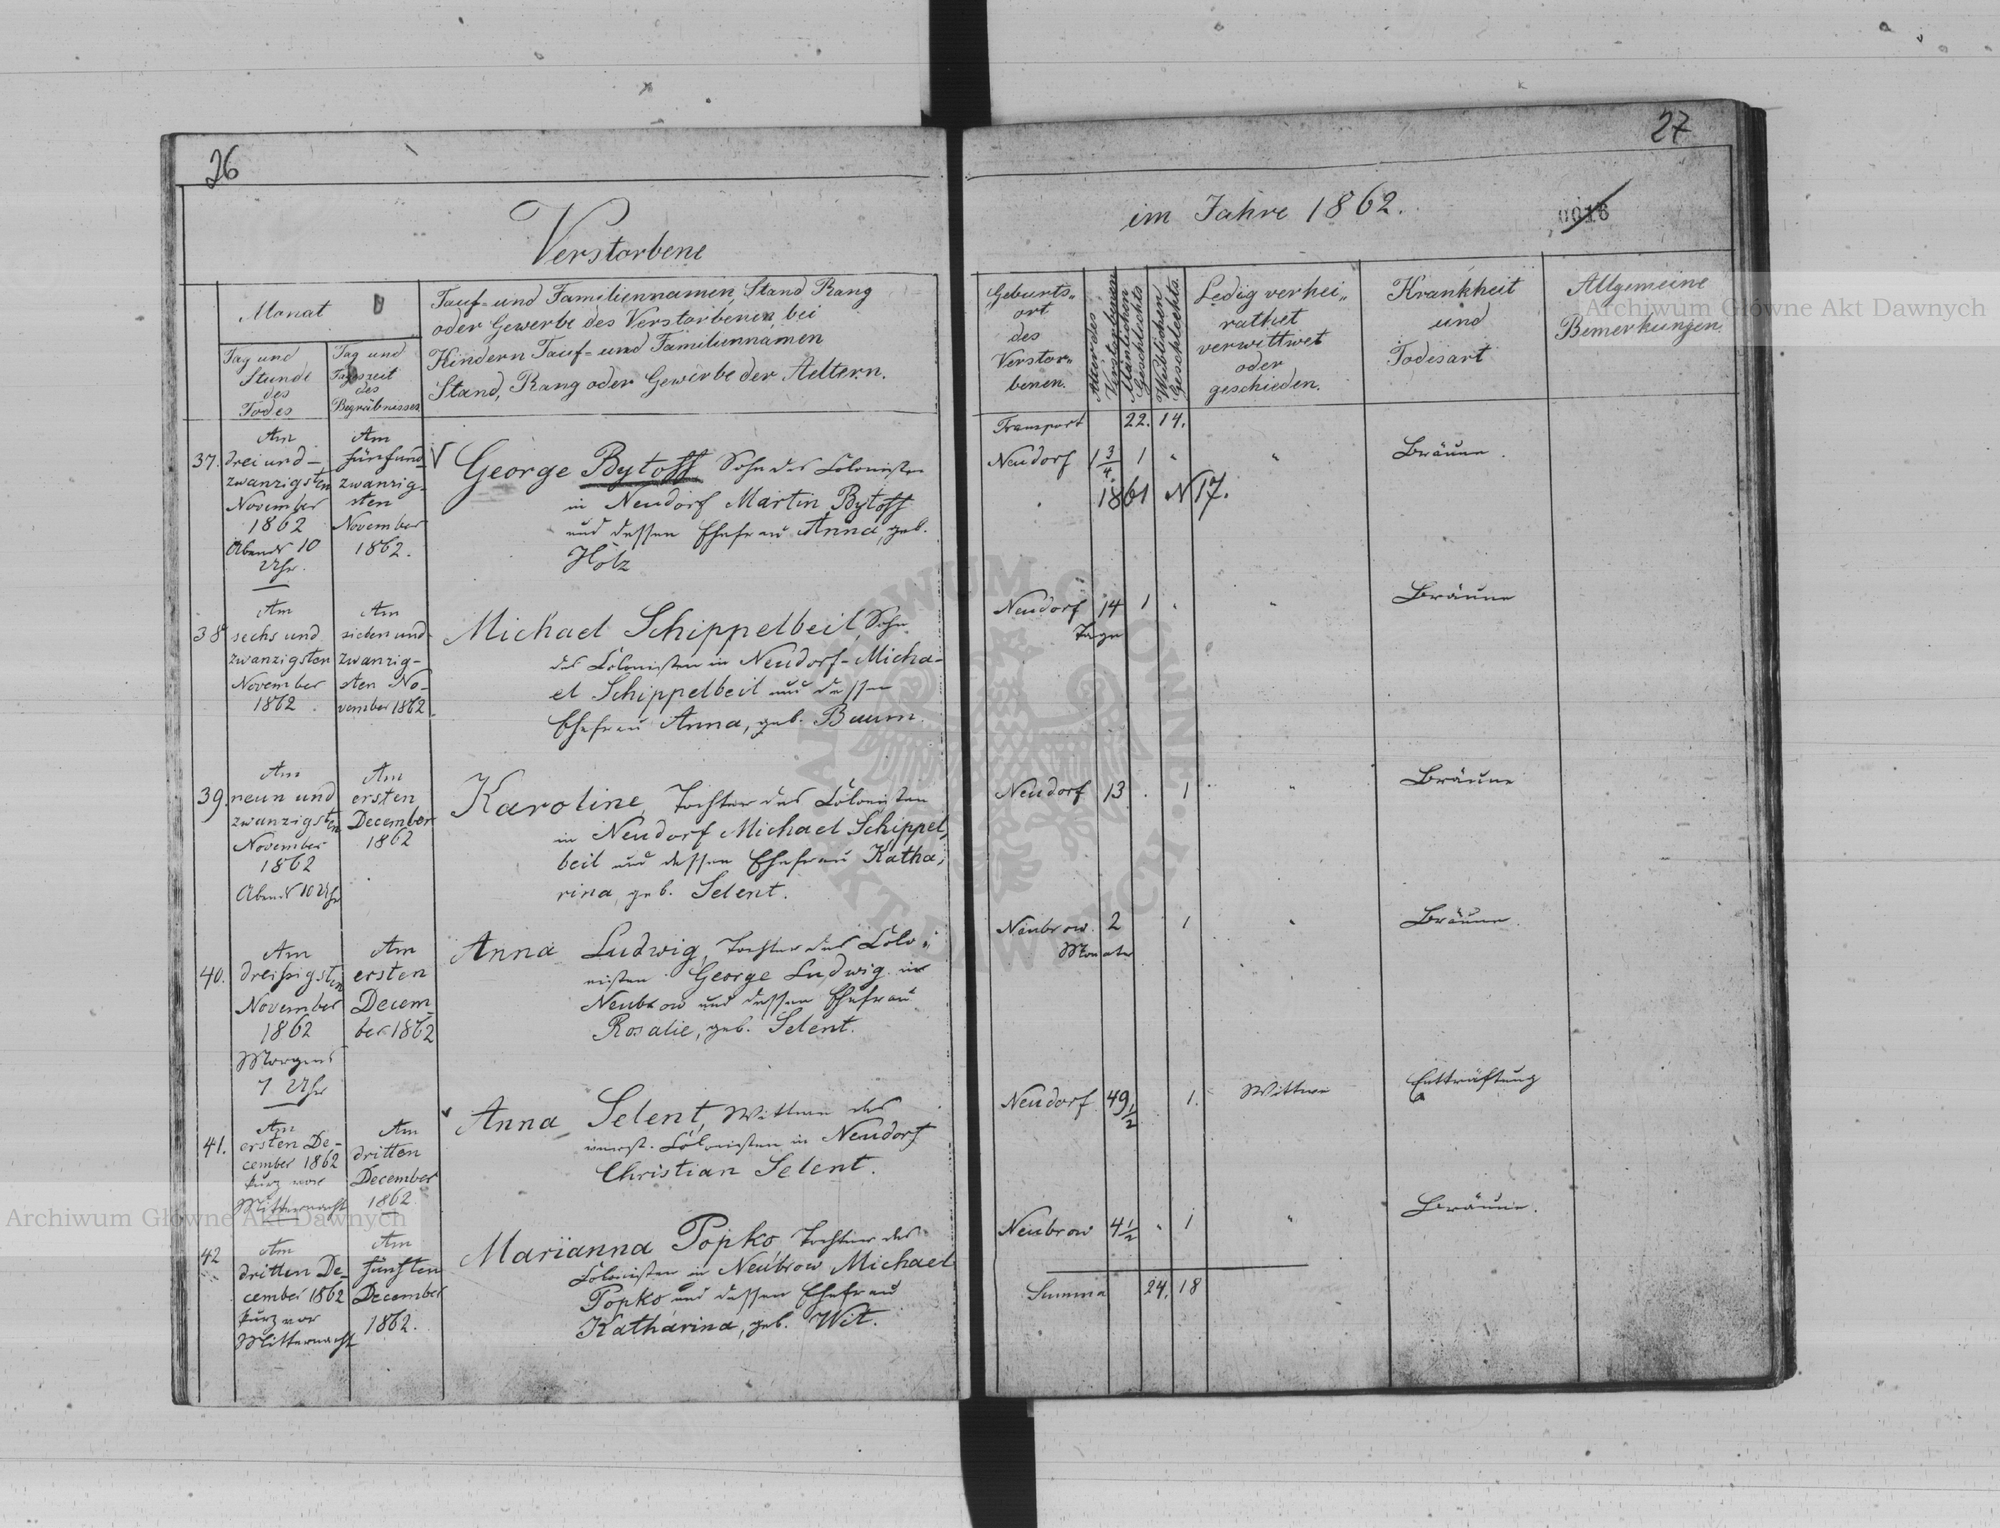 26
Verstorbene
Monat
Tag und
Stunde
des
Todes
Tag und
Tageszeit
des
Begräbnisses
Tauf- und Familiennamen, Stand Rang
oder Gewerbe des Verstorbenen, bei
Kindern Tauf- und Familiennamen
Stand, Rang oder Gewerbe der Aeltern.
37.
Am
drei und-
zwanzigsten
November
1862
Abends 10
Uhr.
Am
fünfund-
zwanzig-
sten
November
1862.
George Bytoff Sohn des Colonisten
in Neudorf Martin Bytoff
und dessen Ehefrau Anna, geb.
Holz
38
Am
sechs und
zwanzigsten
November
1862.
Am
sieben und-
zwanzig-
sten No-
vember 1862.
Michael Schippelbeil, Sohn
des Colonisten in Neudorf-Micha-
el Schippelbeil und dessen
Ehefrau Anna, geb. Baum.
39.
Am
neun und
zwanzigsten
November
1862
Abends 10 Uhr
Am
ersten
December
1862
Karoline, Tochter des Colonisten
in Neudorf Michael Schippel,,
beil und dessen Ehefrau Katha,,
rina, geb. Selent.
40.
Am
dreißigsten
November
1862
Morgens
7 Uhr
Am
ersten
Decem
ber 1862
Anna Ludwig, Tochter des Colo,,
nisten George Ludwig in
Neubrow und dessen Ehefrau
Rosalie, geb. Selent.
41.
Am
ersten De-
cember 1862
kurz vor
Mitternacht
Am
dritten
December
1862
Anna Selent, Wittwe des
verst. Colonisten in Neudorf
Christian Selent.
42
Am
dritten De-
cember 1862
kurz vor
Mitternacht
Am
fünften
December
1862.
Marianna Popko, Tochter des
Colonisten in Neubrow Michael
Popko und dessen Ehefrau
Katharina, geb. Wit.
27
im Jahre 1862.
0016
Geburts-
ort
des
Verstor-
benen.
Alter des
Verstorbenen
Mänlichen
Geschlechts
Weiblichen
Geschlechts.
Ledig verhei,,
rathet
verwittwet
oder
geschieden.
Krankheit
und
Todesart
Allgemeine
Bemerkungen
Transport 22. 14.
Neudorf 1 3/4 1 " " Bräune.
1861 N 17.
Neudorf 14 1 Bräune
Tage
Neudorf 13. 1 " Bräune
Neubrow. 2 1 Bräune.
Monate
Neudorf 49 1/2 1. Wittwe Entkräftung
Neubrow 4 1/2 1 " Bräune.
Summa 24. 18
Archiwum Główne Akt Dawnych
Archiwum Główne Akt Dawnych
ARCHIWUM GŁÓWNE AKT DAWNYCH